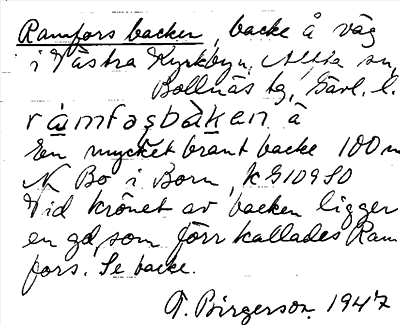 Ramfors backen, backe å väg
i Västra Kyrkbyn, Alfta sn,
Bollnäs tg, Gävl. l.
råmfasbàken å
En mycket brant backe 100 m
N Bo i Born, k G10980
Vid krönet av backen ligger
en gd, som förr kallades Ram
fors. Se backe.
T. Birgerson. 1947